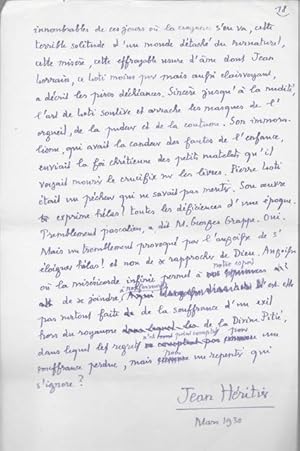 18
innombrables de ces jours où la croyance s'en va, cette
terrible solitude d'un monde détaché du surnaturel,
cette misère, cette effroyable usure d'âme dont Jean
Lorrain, ce Loti moins pur mais aussi clairvoyant,
a décrit les pires déchéances. Sincère jusqu'à la nudité,
l'art de Loti soulève et arrache les masques de l'
orgueil, de la pudeur et de la coutume. Son immora-
lisme, qui avait la candeur des fautes de l'enfance,
enviait la foi chrétienne des petits matelots qu'il
voyait mourir le crucifix sur les lèvres. Pierre Loti
était un pécheur qui ne savait pas mentir. Son œuvre
exprime hélas! toutes les déficiences d'une époque.
Tremblement pascalien, a dit M. Georges Grappe. Oui.
Mais un tremblement provoqué par l'angoisse de s'
éloigner hélas! et non de se rapprocher de Dieu.
notre espoir
où la miséricorde infinie permet à
de se joindre, est-elle
pas surtout faite de la souffrance d'un exil
hors du royaume de la Divine Pitié,
dans lequel le regret
souffrance perdue, mais un repentir qui
s'ignore?
Jean Héritier
Mars 1930